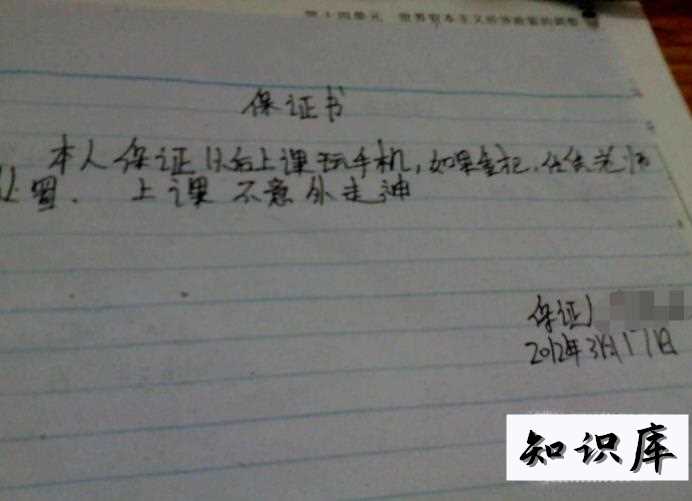 第十四单元 世界资本主义经济政策的调整
保证书
本人保证以后上课玩手机,如果重犯,任凭老师
处置. 上课不意外走神
保证人
2012年3月17日
知识库